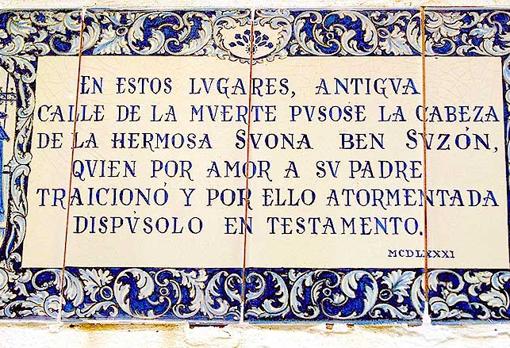 EN ESTOS LVGARES, ANTIGVA
CALLE DE LA MVERTE PVSOSE LA CABEZA
DE LA HERMOSA SVONA BEN SVZÓN,
QVIEN POR AMOR A SV PADRE
TRAICIONÓ Y POR ELLO ATORMENTADA
DISPÚSOLO EN TESTAMENTO.
MCDLXXXI